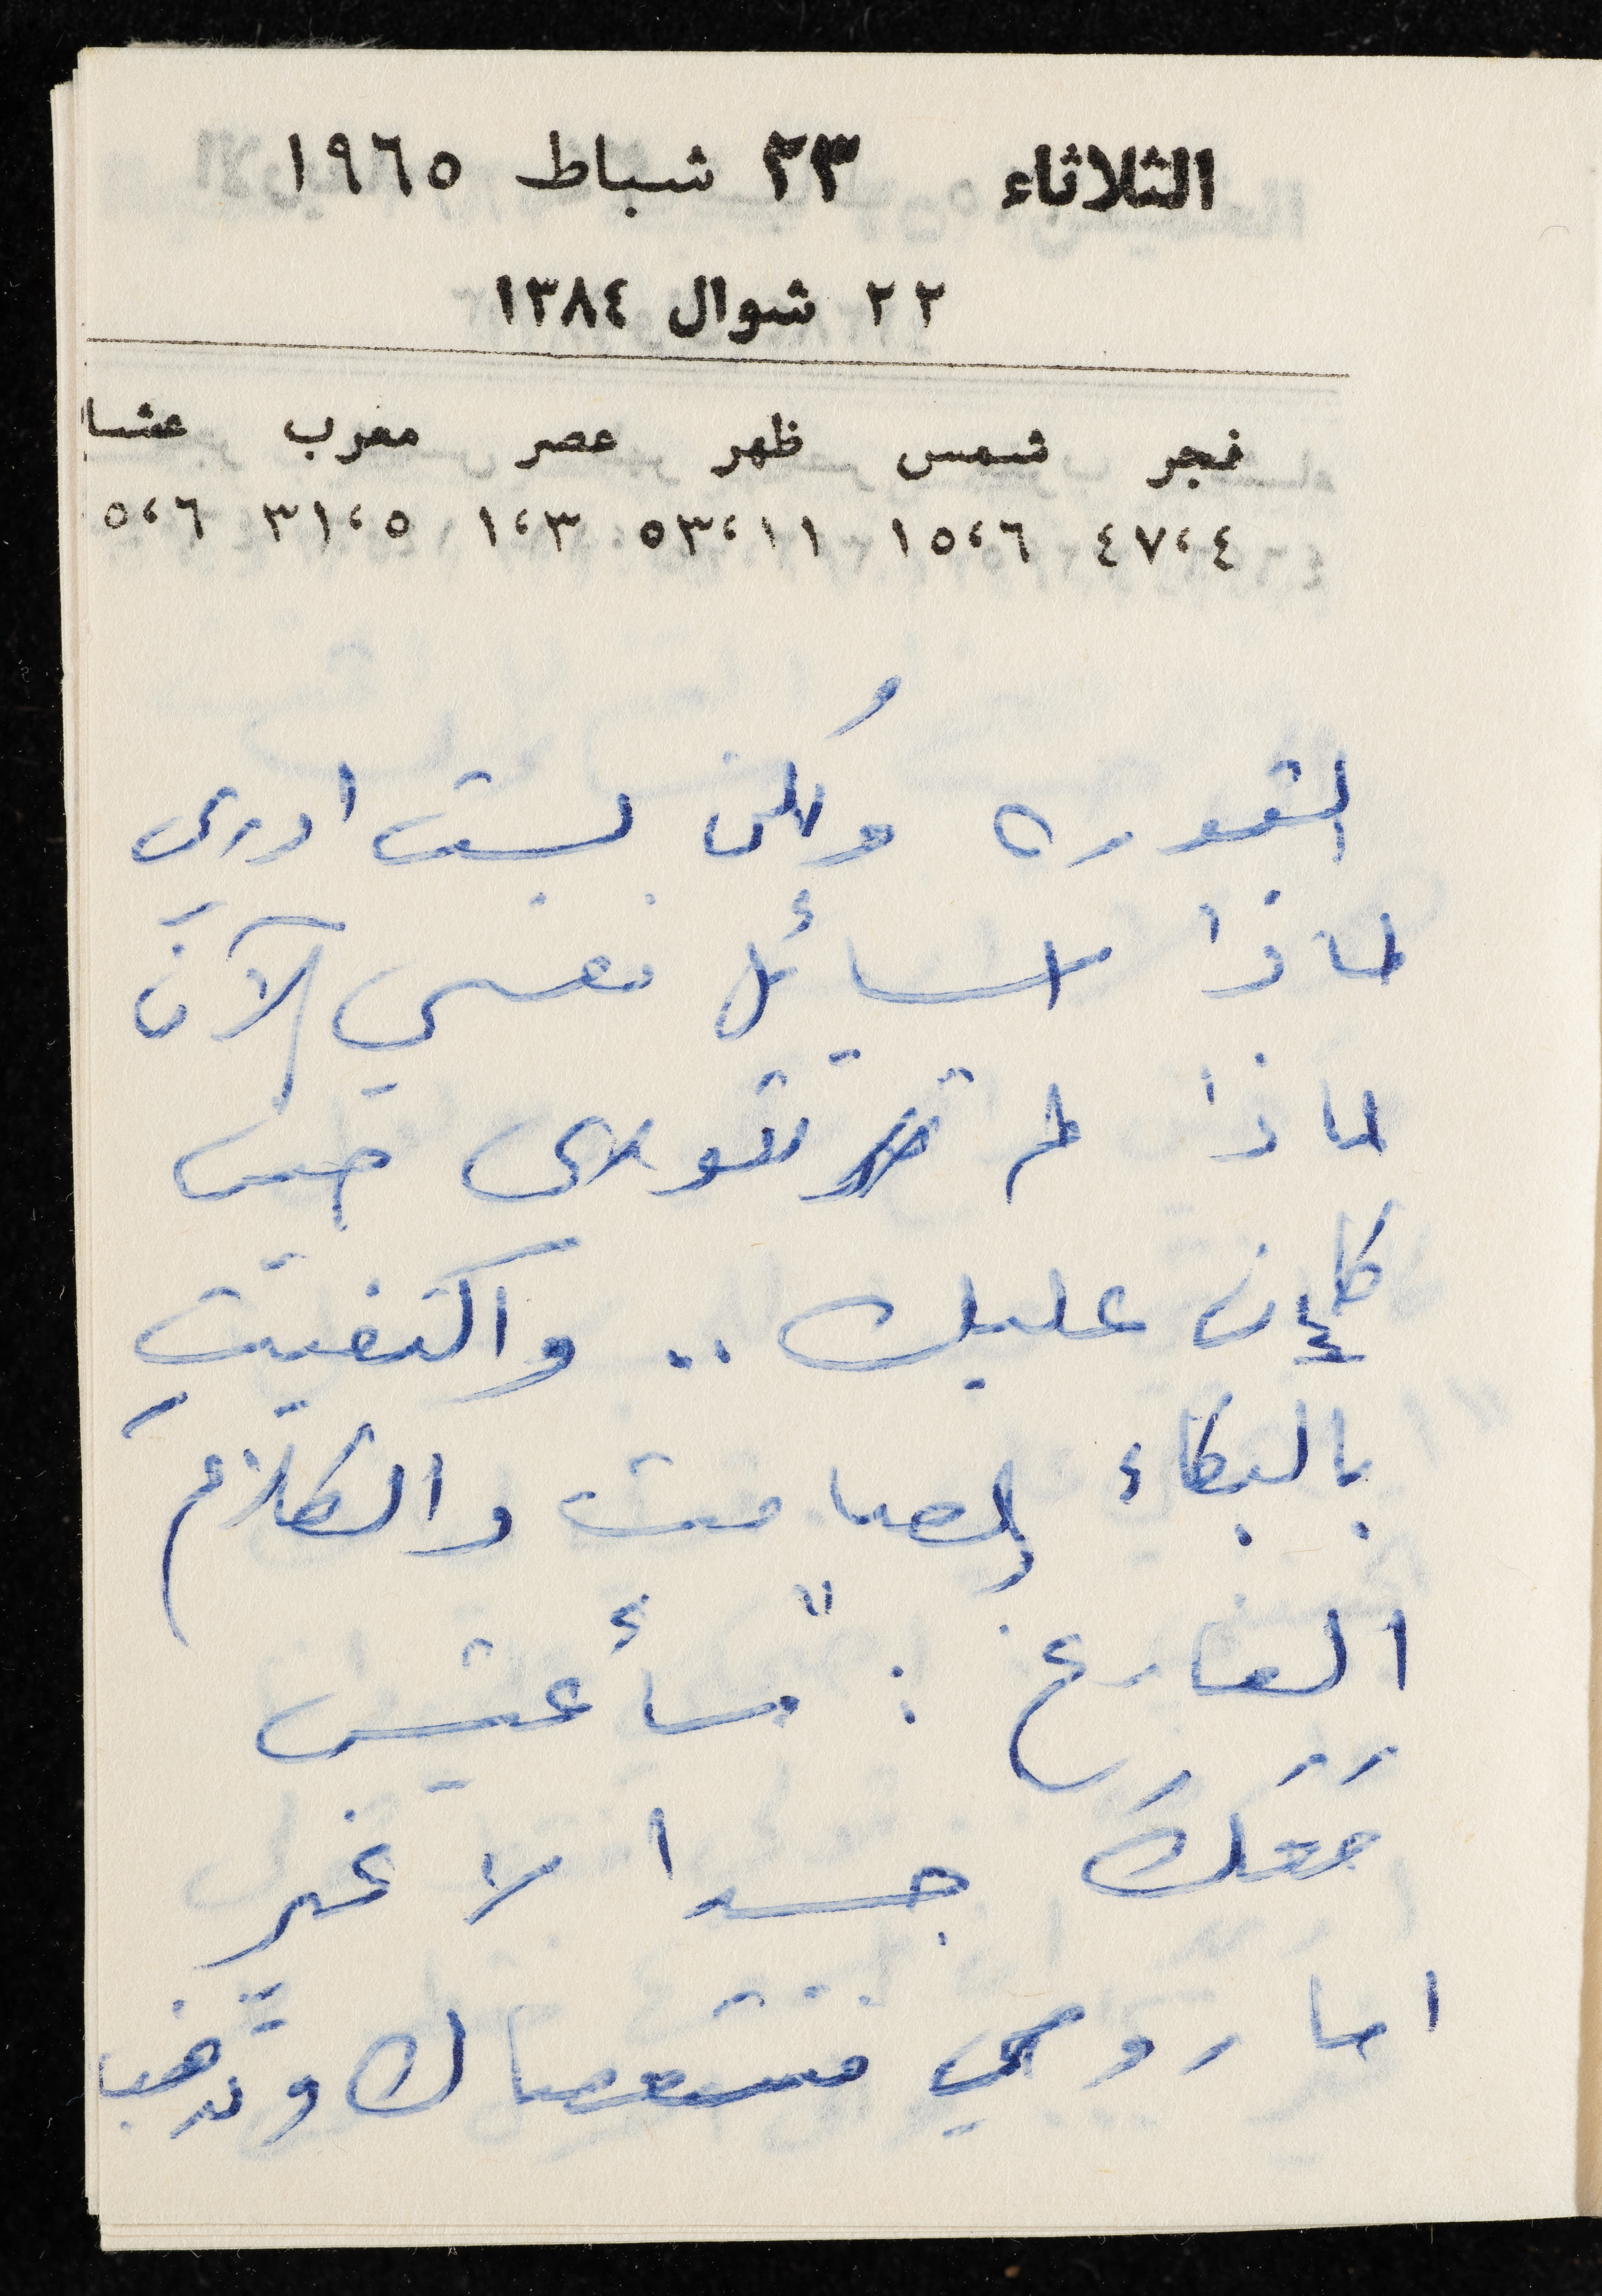 الثلاثاء ٢٣ شباط ١٩٦٥
٢٢ شوال ١٣٨٤
فجر شمس ظهر عصر مغرب عشا
٤٧،٤ ١٥،٦ ٥٣،١١ ١،٣ ٣١،٥ ٥،٦
الثوره ولكن لست ادري
لماذا اسائل نفسي الآن
لماذا لم تثورى حين
كان عليك .. واكتفيتِ
بالبكاء الصامت والكلام
الفارغ : " سأعيش
مَعَكَ جسدا لا غير
اما روحي فستعصاك وتذهب